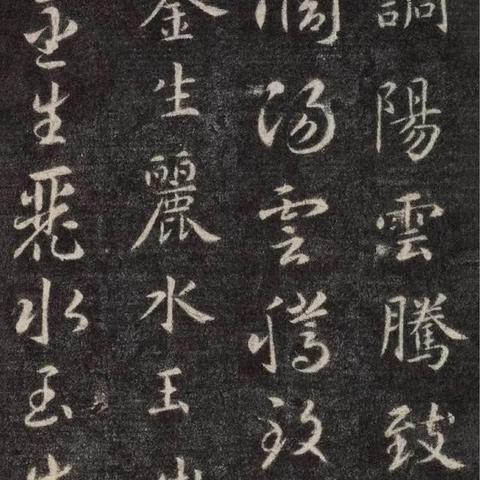 調陽雲騰致
調陽雲騰致
金生麗水玉出
金生麗水玉出